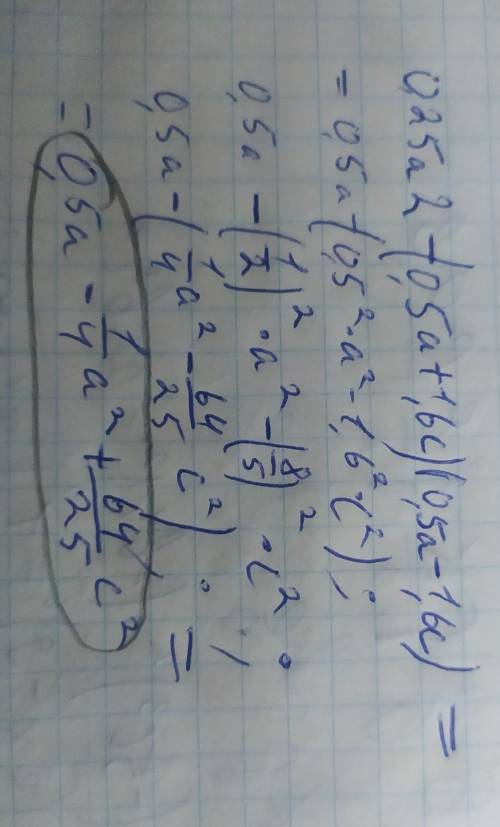 0,25a2-(0,5a+1,6c)(0,5a-1,6c)=
=0,5a-(0,5²·a²-1,6²·c²);
0,5a-(1/2)²·a²-(8/5)²·c²;
0,5a-(1/4a²-64/25c²);=
=0,5a-1/4a²+64/25c²